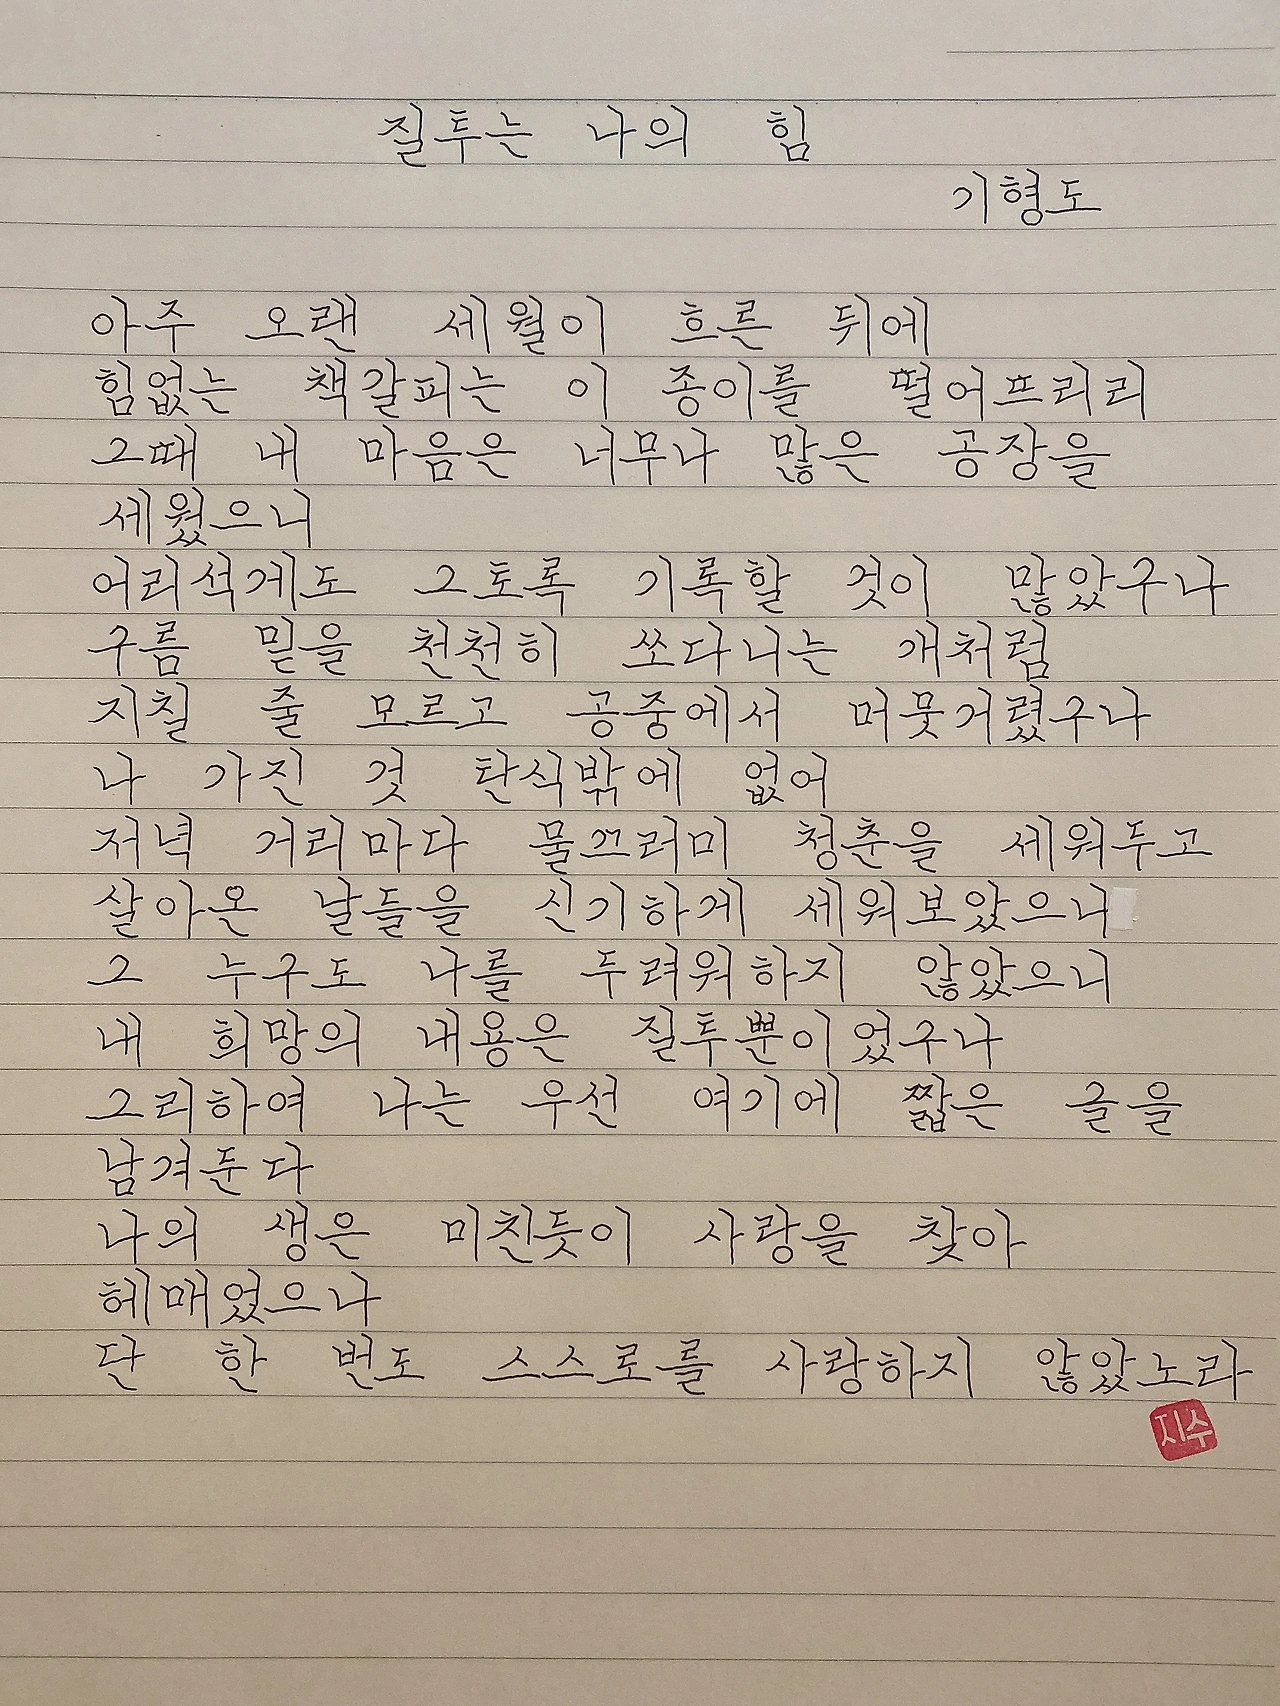 질투는 나의 힘
기형도
아주 오랜 세월이 흐른 뒤에
힘없는 책갈피는 이 종이를 떨어뜨리리
그때 내 마음은 너무나 많은 공장을
세웠으니
어리석게도 그토록 기록할 것이 많았구나
구름 밑을 천천히 쏘다니는 개처럼
지칠 줄 모르고 공중에서 머뭇거렸구나
나 가진 것 탄식밖에 없어
저녁 거리마다 물끄러미 청춘을 세워두고
살아온 날들을 신기하게 세워보았으니
그 누구도 나를 두려워하지 않았으니
내 희망의 내용은 질투뿐이었구나
그리하여 나는 우선 여기에 짧은 글을
남겨둔다
나의 생은 미친듯이 사랑을 찾아
헤매었으나
단 한 번도 스스로를 사랑하지 않았노라
지수